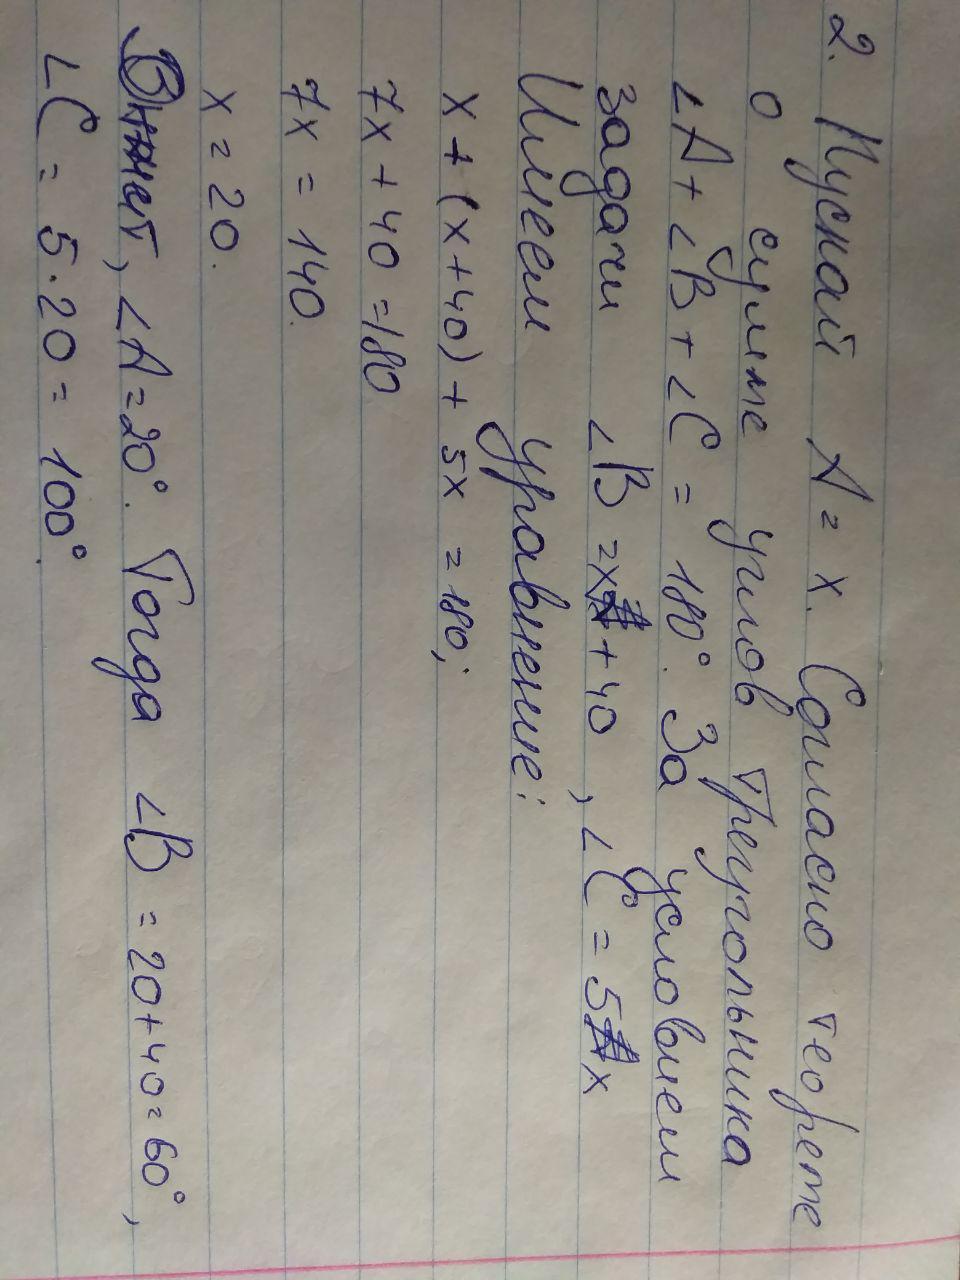 2. Пускай A = x. Согласно теореме
о сумме углов треугольника
∠A + ∠B + ∠C = 180°. За условием
задачи ∠B = x + 40, ∠C = 5x
Имеем уравнение:
x + (x + 40) + 5x = 180;
7x + 40 = 180
7x = 140.
x = 20.
∠A = 20°. Тогда ∠B = 20 + 40 = 60°,
∠C = 5 · 20 = 100°.